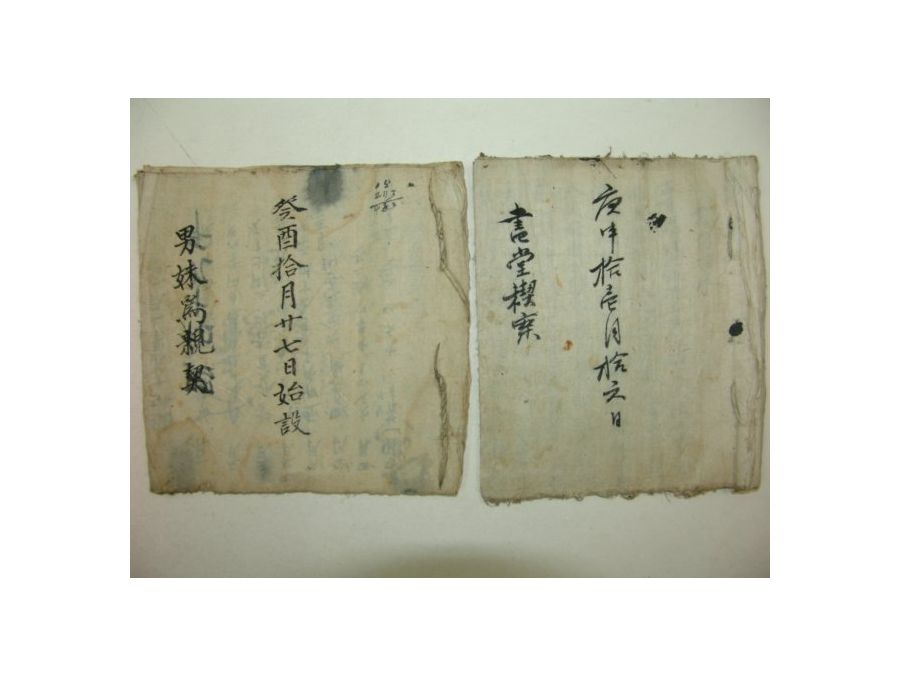 庚申拾壱月拾六日
書堂稧案
癸酉拾月廿七日始設
男妹爲親契